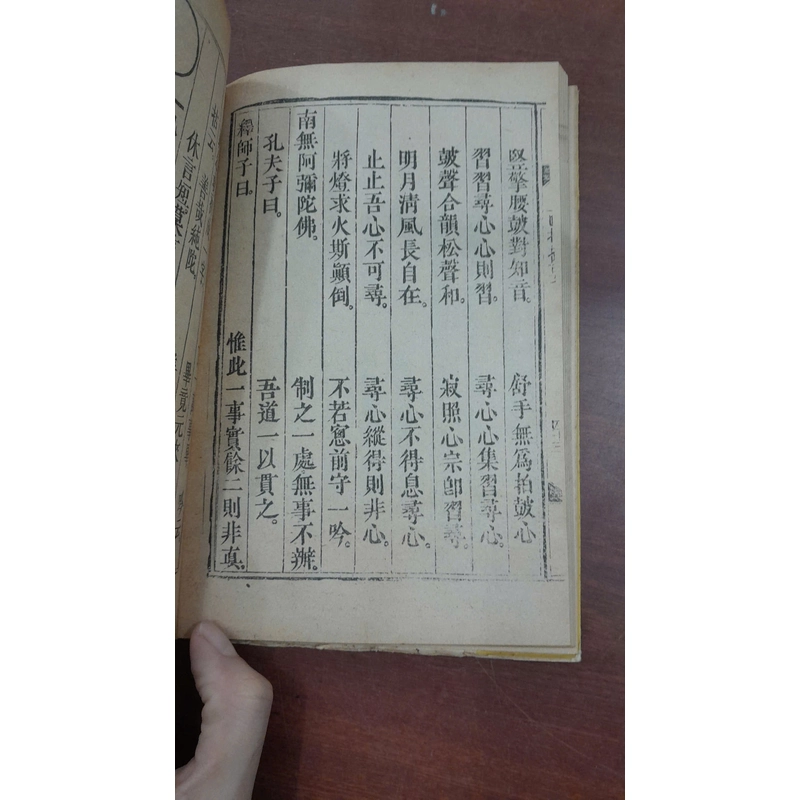 竪擎腰皷對知音。 舒手無爲拍皷心。
習習尋心心則習。 尋心心集習尋心。
皷聲合韻松聲和。 寂照心宗卽習尋。
明月清風長自在。 尋心不得息尋心。
止止吾心不可尋。 尋心縱得則非心。
將燈求火斯顚倒。 不若窻前守一吟。
南無阿彌陀佛。 制之一處無事不辦。
孔夫子曰。 吾道一以貫之。
釋師子曰。 惟此一事實餘二則非眞。
休言